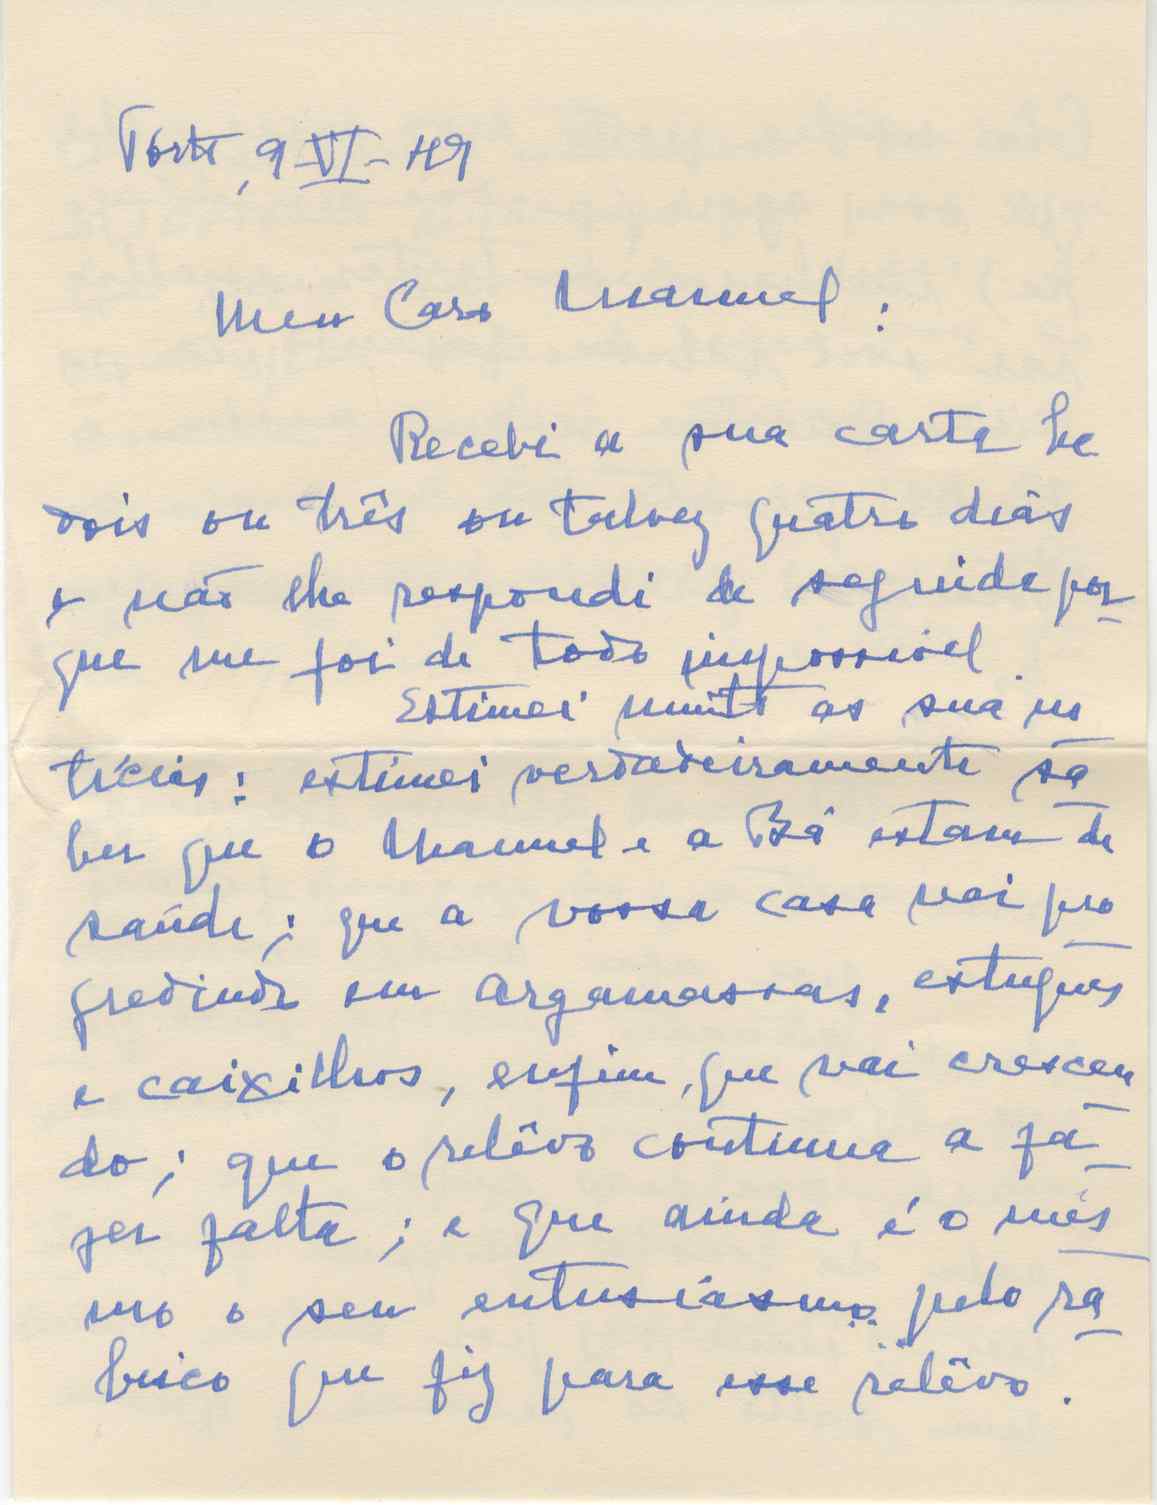 Porto, 9-VI-49
Meu Caro Manuel:
Recebi a sua carta há
dois ou três ou talvez quatro dias
e não lhe respondi de seguida por-
que me foi de todo impossivel.
Estimei muito as sua no
tícias: estimei verdadeiramente sa
ber que o Manuel e a Bá estam de
saúde; que a vossa casa vai pro
gredindo em argamassas, estuques
e caixilhos, enfim, que vai crescen
do; que o relêvo continua a fa
zer falta; e que ainda é o mês
mo o seu entusiásmo pelo ra
bisco que fiz para esse relêvo.